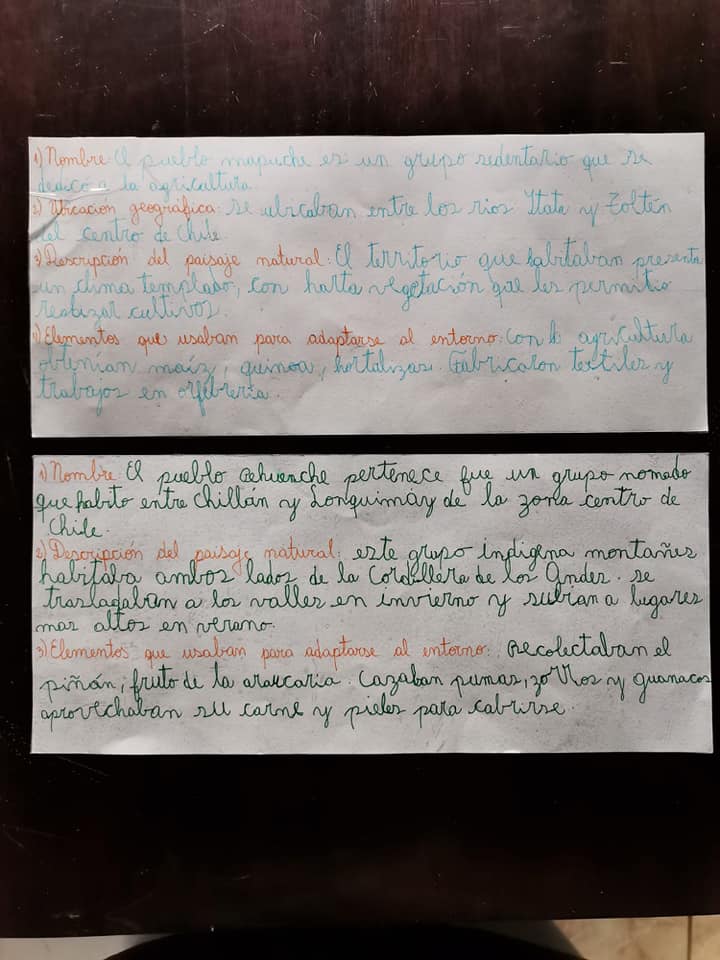 1) Nombre: El pueblo mapuche es un grupo sedentario que se
dedicó a la agricultura
2) Ubicación geográfica: se ubicaban entre los rios Itata y Toltén
del centro de Chile.
3) Descripción del paisaje natural: El territorio que habitaban presenta
un clima templado, con harta vegetación que les permitio
realizar cultivos.
4) Elementos que usaban para adaptarse al entorno: con la agricultura
obtenían maíz, quinoa, hortalizas. Fabricaron textiles y
trabajos en orfebrería.
1) Nombre El pueblo pehuenche pertenece fue un grupo nomado
que habito entre Chillán y Lonquimay de la zona centro de
Chile.
2) Descripción del paisaje natural: este grupo indigena montañes
habitaba ambos lados de la Cordillera de los Andes. se
trasladaban a los valles en invierno y subian a lugares
mas altos en verano.
3) Elementos que usaban para adaptarse al entorno: Recolectaban el
piñón, fruto de la araucaria. Cazaban pumas, zorros y guanacos
aprovechaban su carne y pieles para cabrirse.